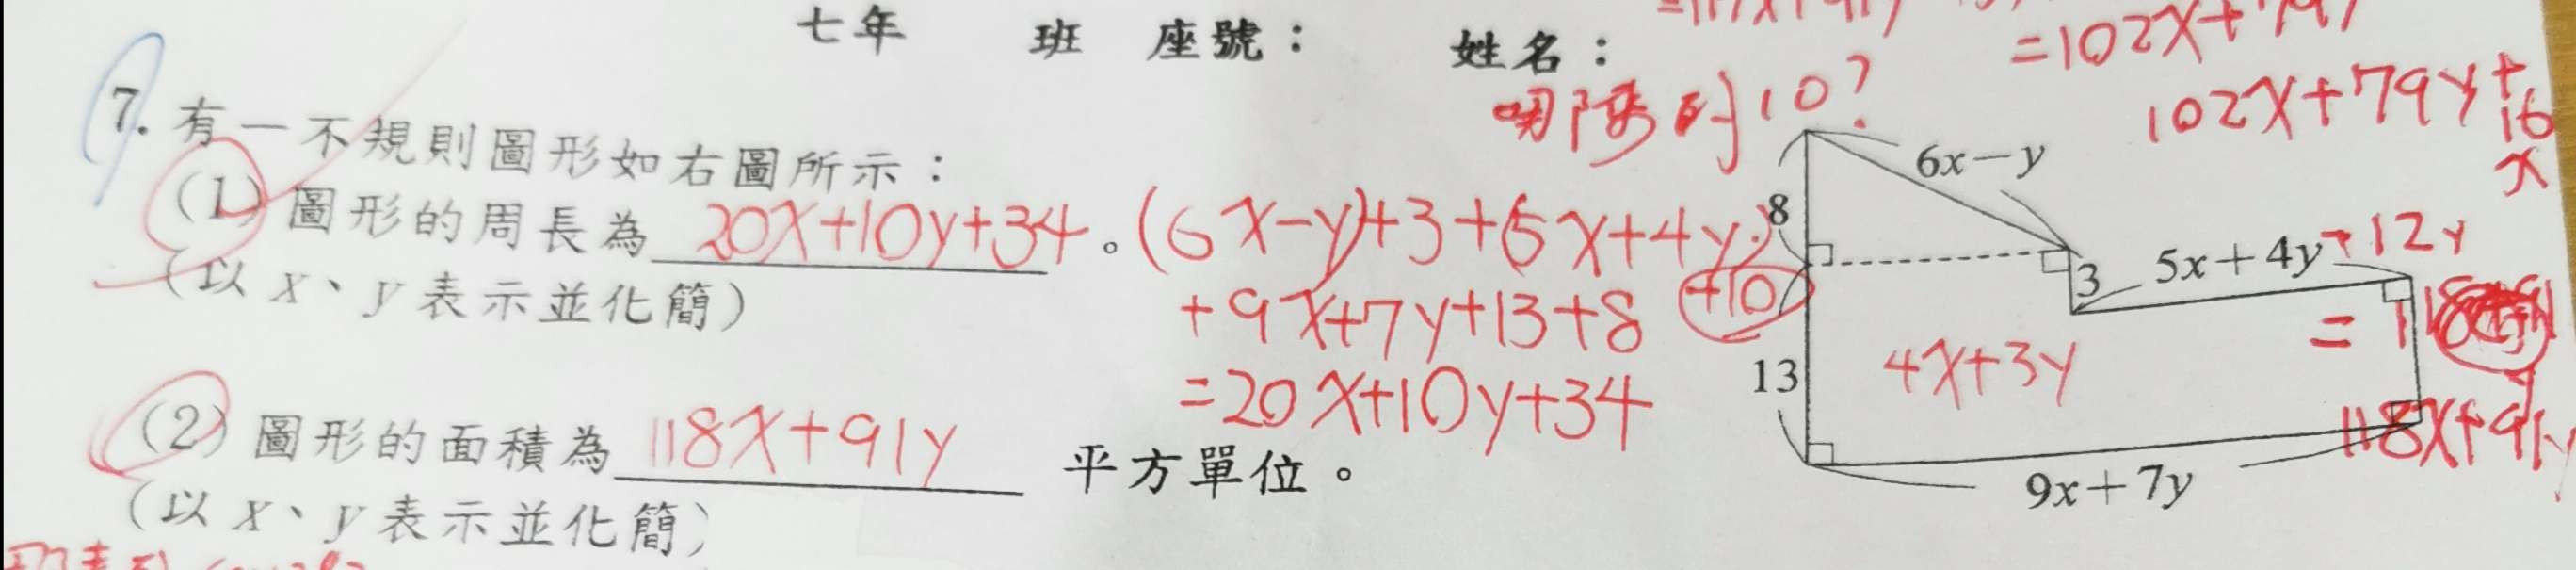 七年 班 座號： 姓名：
=102x+79y
102x+79y+
16
x
哪來的10？
7. 有一不規則圖形如右圖所示：
(1) 圖形的周長為 20x+10y+34 。
(以 x、y 表示並化簡)
(6x-y)+3+(5x+4y)
+9x+7y+13+8 +10
=20x+10y+34
(2) 圖形的面積為 118x+91y 平方單位。
(以 x、y 表示並化簡)
6x－y
8
3
5x＋4y
+12y
= 118
13
4x+3y
118x+91y
9x＋7y